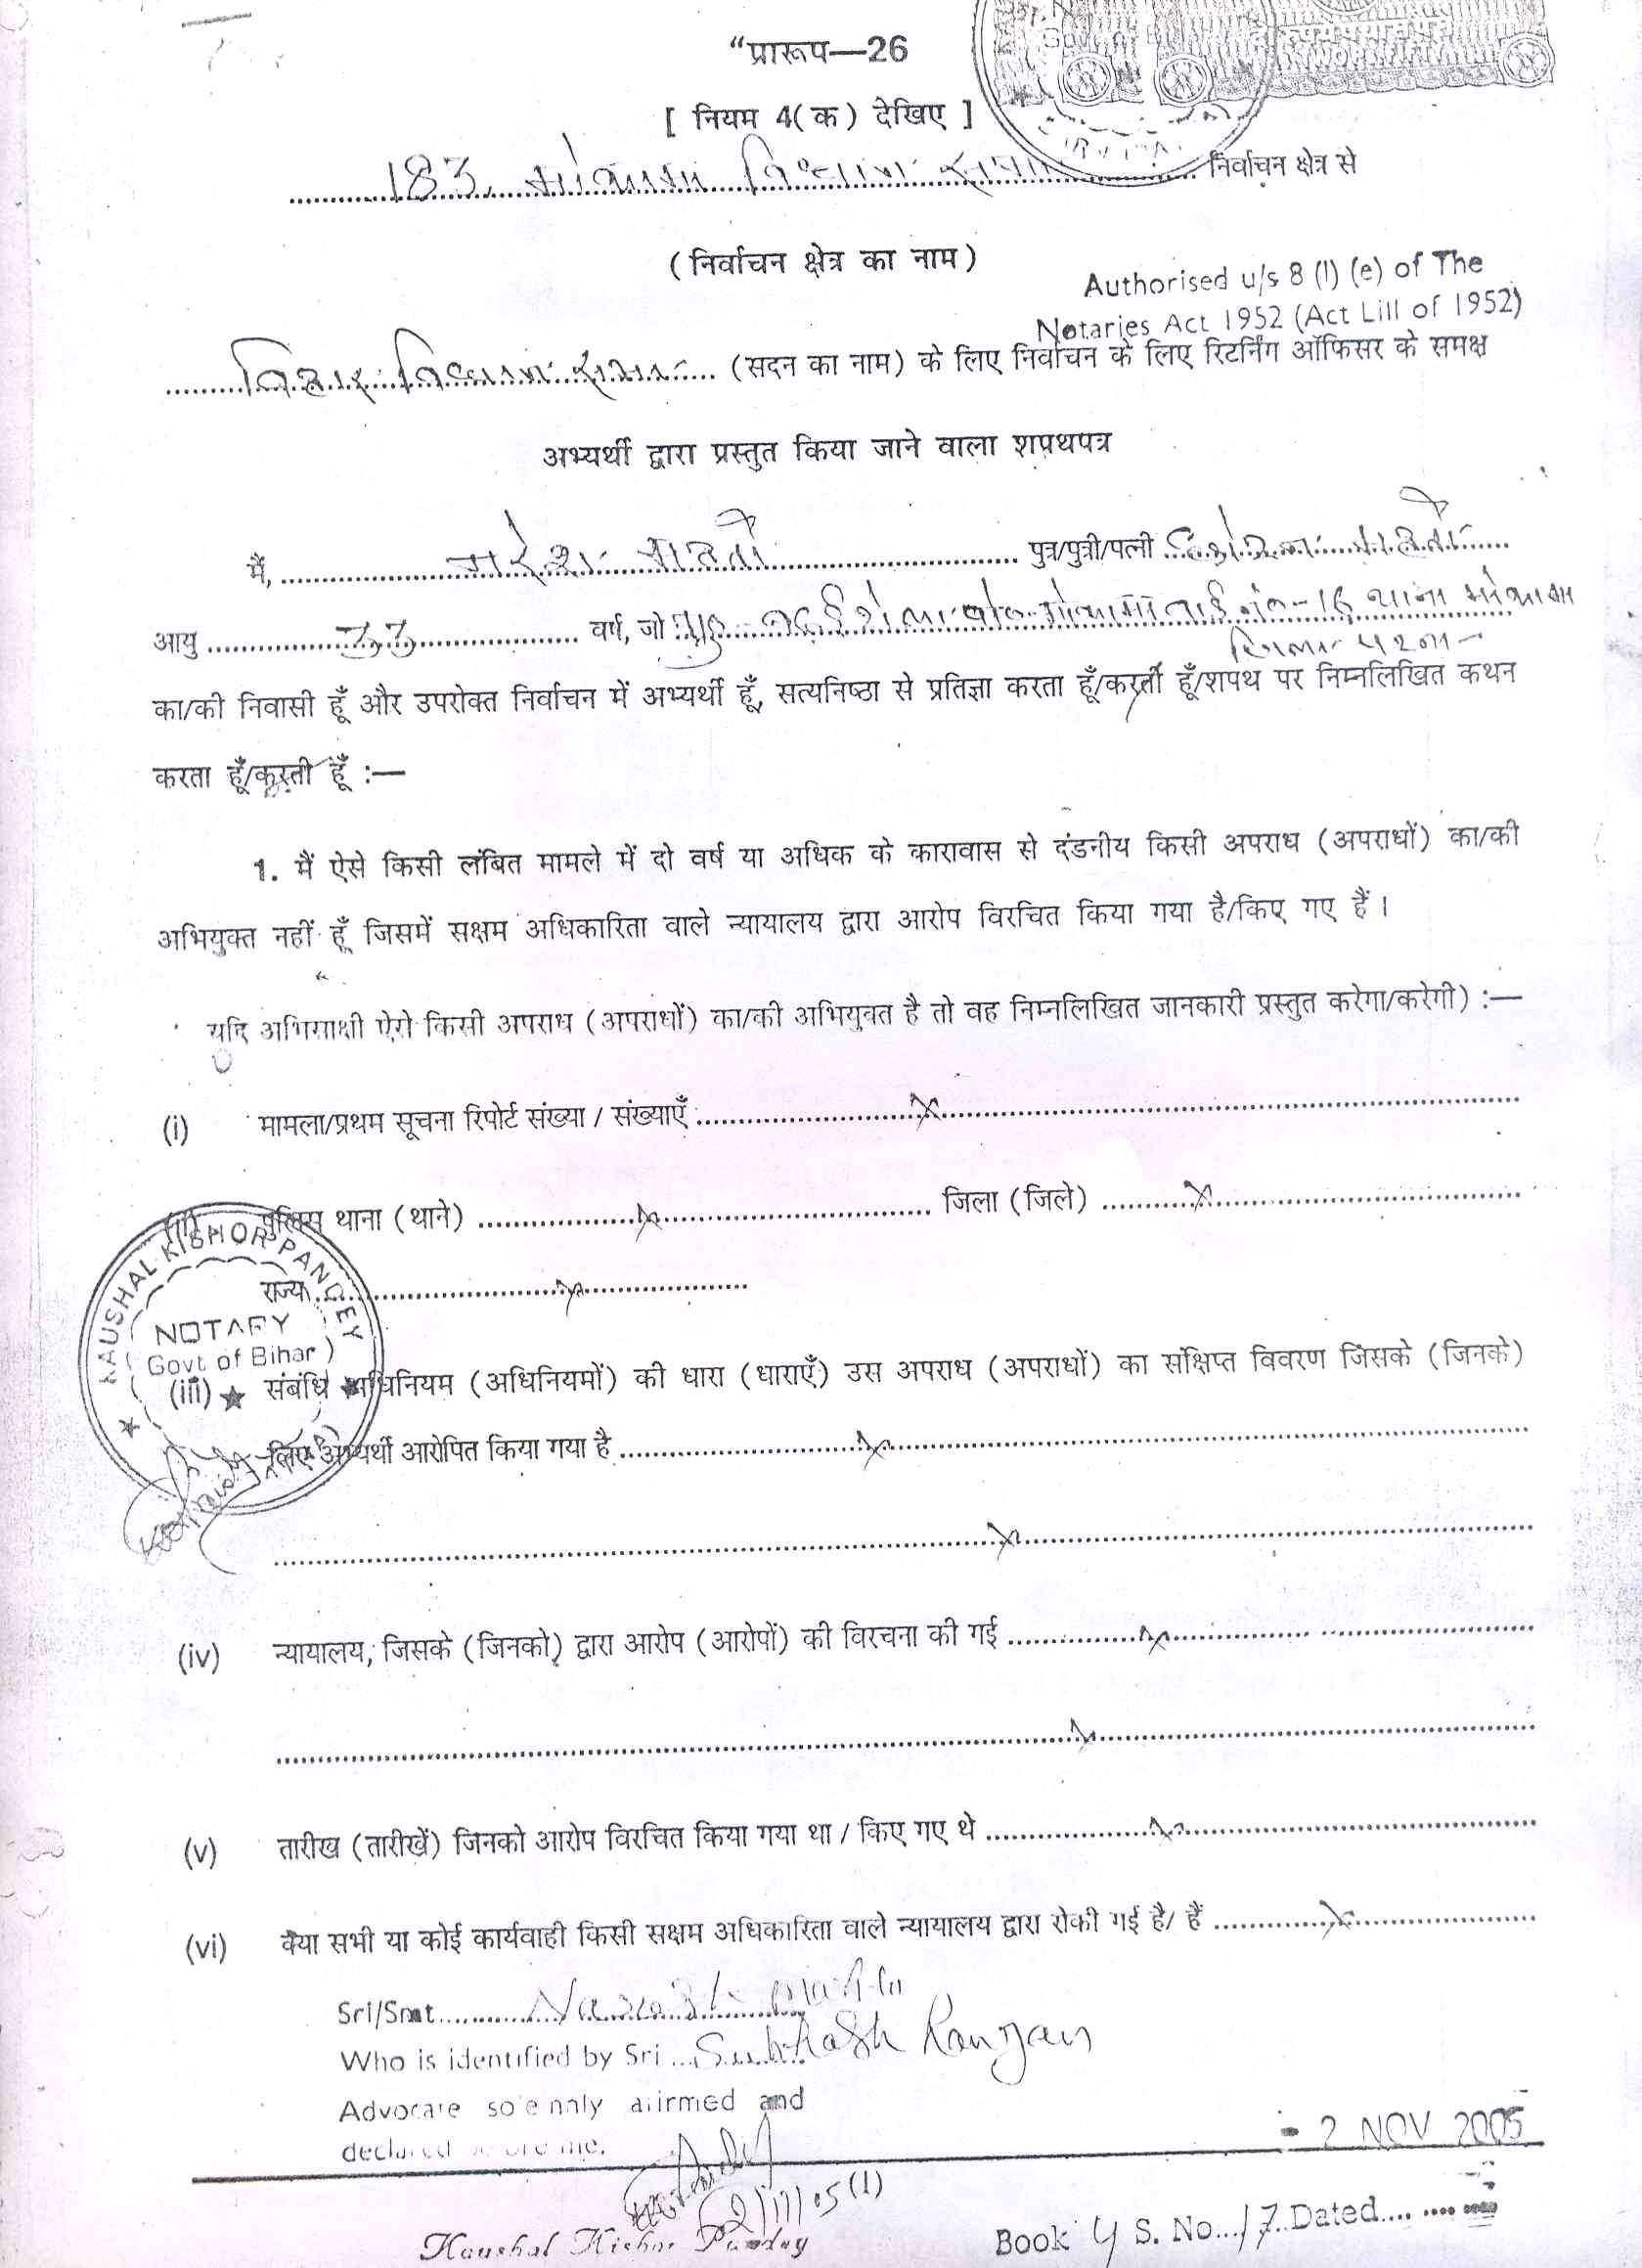 “प्रारूप—26
[ नियम 4(क) देखिए ]
183 मोकामा विधान सभा निर्वाचन क्षेत्र से
(निर्वाचन क्षेत्र का नाम)
Authorised u/s 8 (I) (e) of The
Notaries Act 1952 (Act LIII of 1952)
बिहार विधान सभा (सदन का नाम) के लिए निर्वाचन के लिए रिटर्निंग ऑफिसर के समक्ष
अभ्यर्थी द्वारा प्रस्तुत किया जाने वाला शपथपत्र
मैं, नरेश महतो पुत्र/पुत्री/पत्नी महतो
आयु 33 वर्ष, जो नं०-16 थाना मोकामा
जिला पटना
का/की निवासी हूँ और उपरोक्त निर्वाचन में अभ्यर्थी हूँ, सत्यनिष्ठा से प्रतिज्ञा करता हूँ/करती हूँ/शपथ पर निम्नलिखित कथन
करता हूँ/करती हूँ :—
1. मैं ऐसे किसी लंबित मामले में दो वर्ष या अधिक के कारावास से दंडनीय किसी अपराध (अपराधों) का/की
अभियुक्त नहीं हूँ जिसमें सक्षम अधिकारिता वाले न्यायालय द्वारा आरोप विरचित किया गया है/किए गए हैं ।
यदि अभिसाक्षी ऐसे किसी अपराध (अपराधों) का/की अभियुक्त है तो वह निम्नलिखित जानकारी प्रस्तुत करेगा/करेगी) :—
(i) मामला/प्रथम सूचना रिपोर्ट संख्या / संख्याएँ ..... x .....
(ii) पुलिस थाना (थाने) ..... x ..... जिला (जिले) ..... x .....
राज्य ..... x .....
KAUSHAL KISHOR PANDEY
NOTARY
(Govt of Bihar)
(iii) संबंधि अधिनियम (अधिनियमों) की धारा (धाराएँ) उस अपराध (अपराधों) का संक्षिप्त विवरण जिसके (जिनके)
लिए अभ्यर्थी आरोपित किया गया है ..... x .....
..... x .....
(iv) न्यायालय, जिसके (जिनको) द्वारा आरोप (आरोपों) की विरचना की गई ..... x .....
..... x .....
(v) तारीख (तारीखें) जिनको आरोप विरचित किया गया था / किए गए थे ..... x .....
(vi) क्या सभी या कोई कार्यवाही किसी सक्षम अधिकारिता वाले न्यायालय द्वारा रोकी गई है/ हैं ..... x .....
Sri/Smt..... Naresh mahto
Who is identified by Sri ... Subhash Ranjan
Advocate solemnly affirmed and
declared before me.
- 2 NOV 2005
2/11/05 (1)
Kaushal Kishor Pandey
Book 4 S. No. 17 Dated....